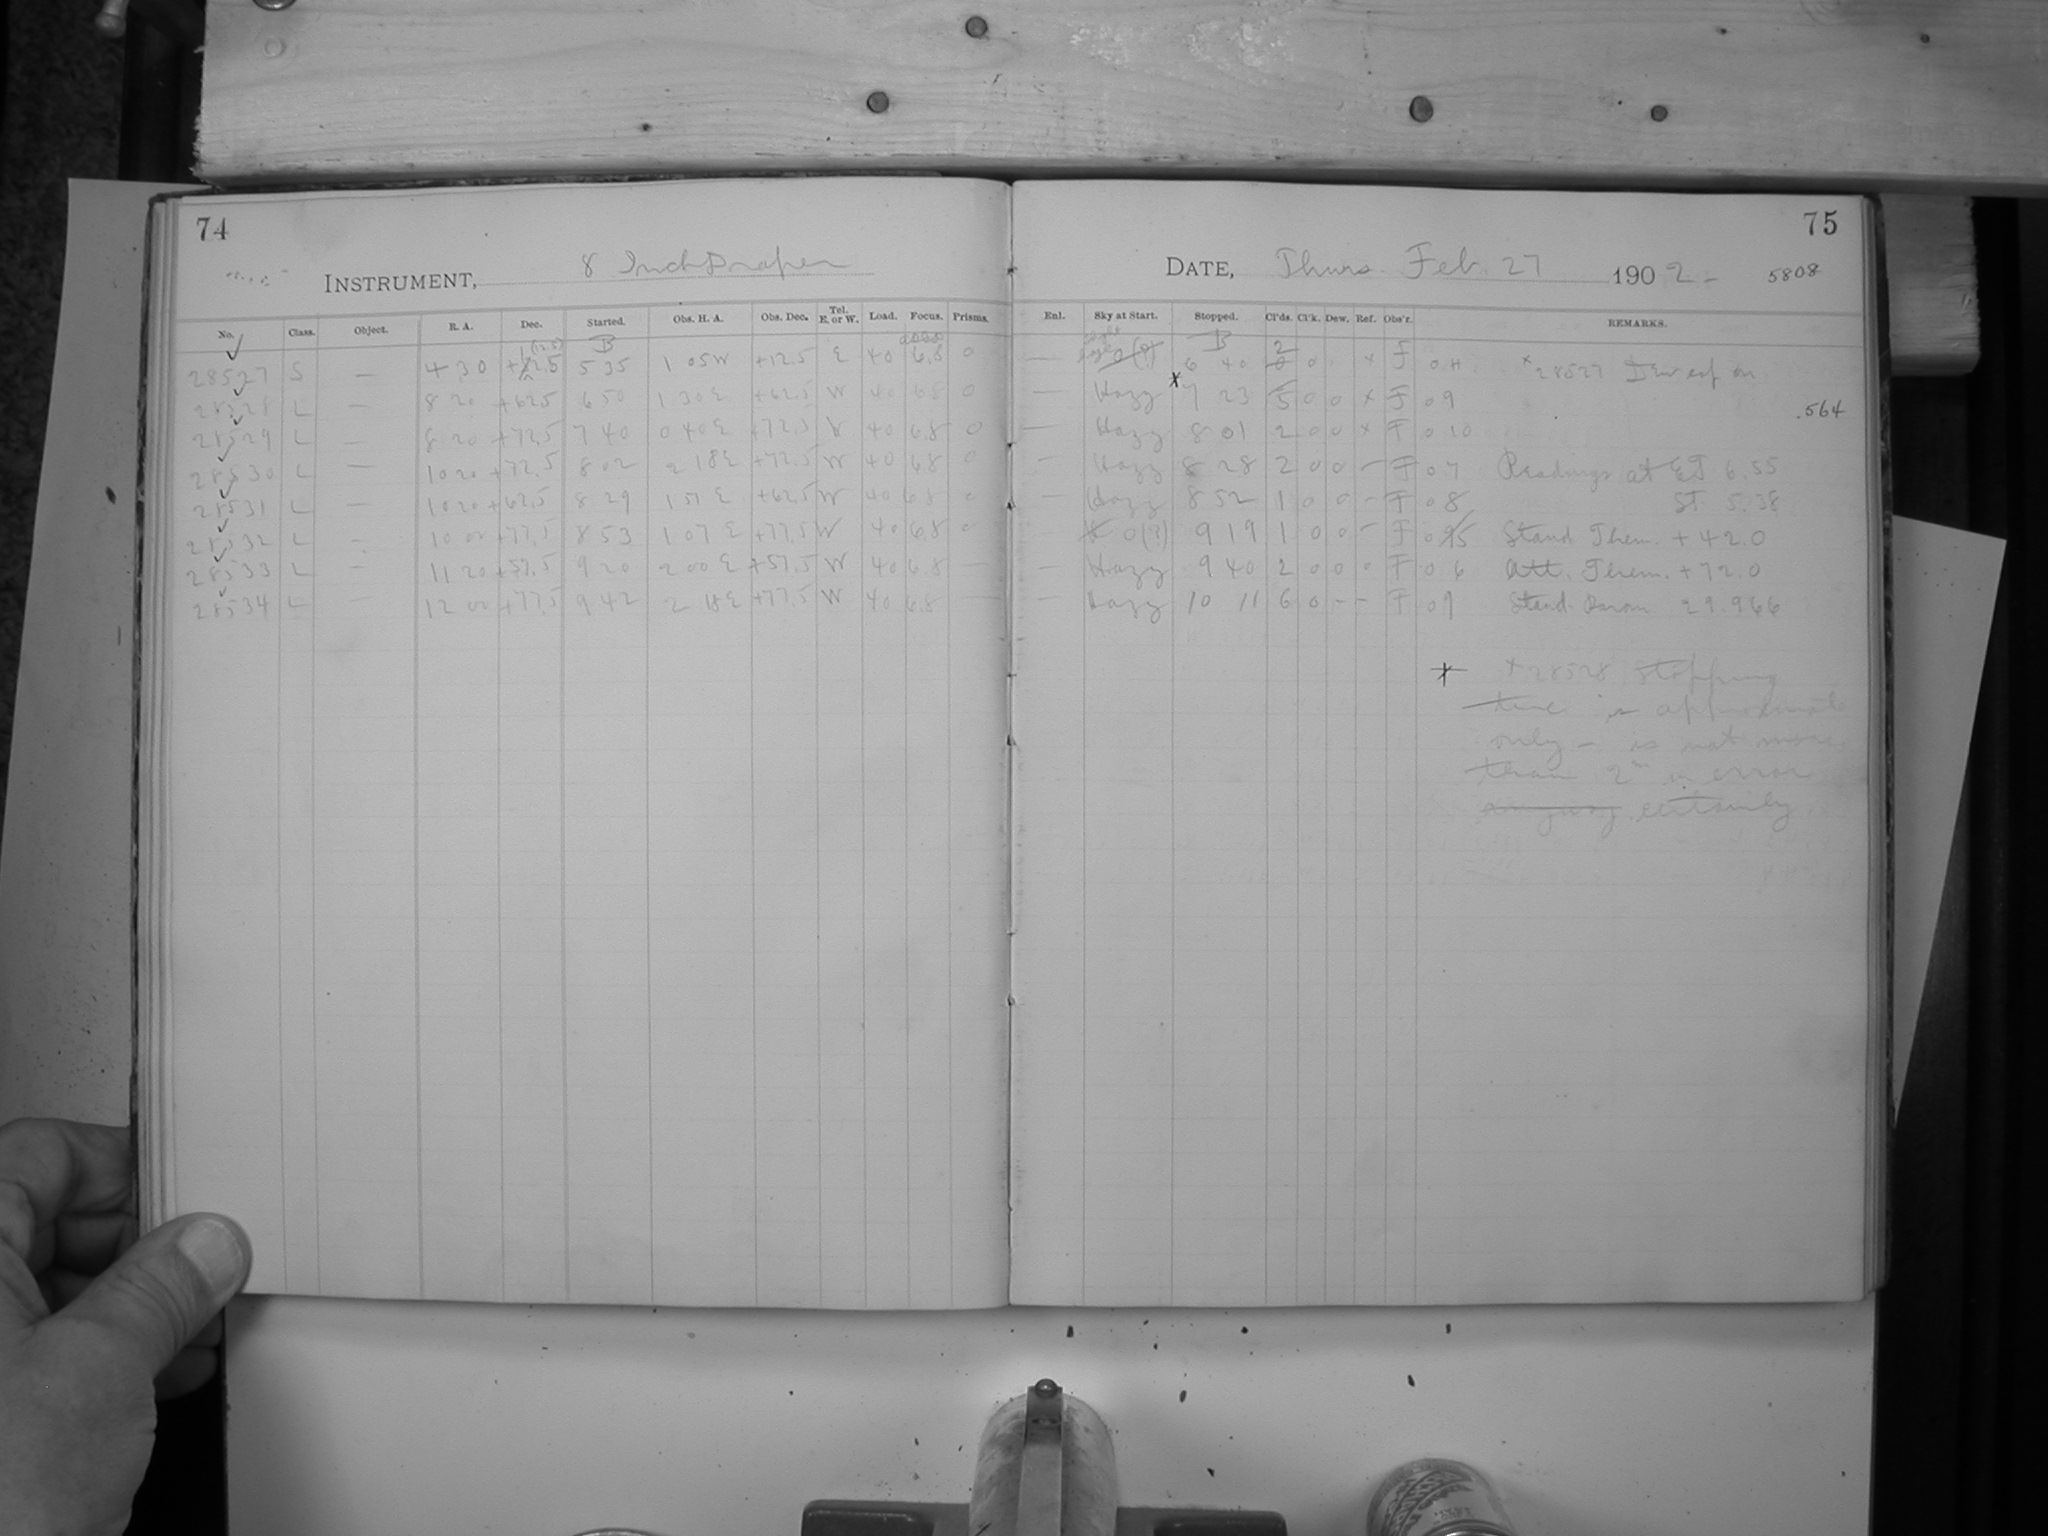 74
INSTRUMENT, 8 Inch Draper
No. Class. Object. R. A. Dec. Started. Obs. H. A. Obs. Dec. Tel. E. or W. Load. Focus. Prisms.
28527 S — 4 30 +12.5 5 35 1 05 W +12.5 E 40 6.8 0
28528 L — 8 20 +62.5 6 50 1 30 E +62.5 W 40 6.8 0
28529 L — 8 20 +72.5 7 40 0 40 E +72.5 W 40 6.8 0
28530 L — 10 20 +72.5 8 02 2 18 E +72.5 W 40 6.8 0
28531 L — 10 20 +62.5 8 29 1 51 E +62.5 W 40 6.8 0
28532 L — 10 00 +77.5 8 53 1 07 E +77.5 W 40 6.8 0
28533 L — 11 20 +57.5 9 20 2 00 E +57.5 W 40 6.8 —
28534 L — 12 00 +77.5 9 42 2 18 E +77.5 W 40 6.8 —
75
DATE, Thurs. Feb. 27 1902 - 5808
Enl. Sky at Start. Stopped. Cl'ds. Cl'k. Dew. Ref. Obs'r. REMARKS.
— 0(?) 6 40 2 0 x F x 28527 Dew cap on
— Hazy x 7 23 5 0 0 x F 0 9
.564
— Hazy 8 01 2 0 0 x F 0 10
— Hazy 8 28 2 0 0 – F 0 7 Readings at ET 6.55
— Hazy 8 52 1 0 0 – F 0 8 ST 5.38
0(?) 9 19 1 0 0 – F Stand Them. +42.0
— Hazy 9 40 2 0 0 0 F 0 6 Att. Therm. +72.0
— Hazy 10 11 6 0 – – F 0 9 Stand Barom 29.966
x x 28528 Stopping
time is approximate
only – is not more
than 2m in error
anyway certainly